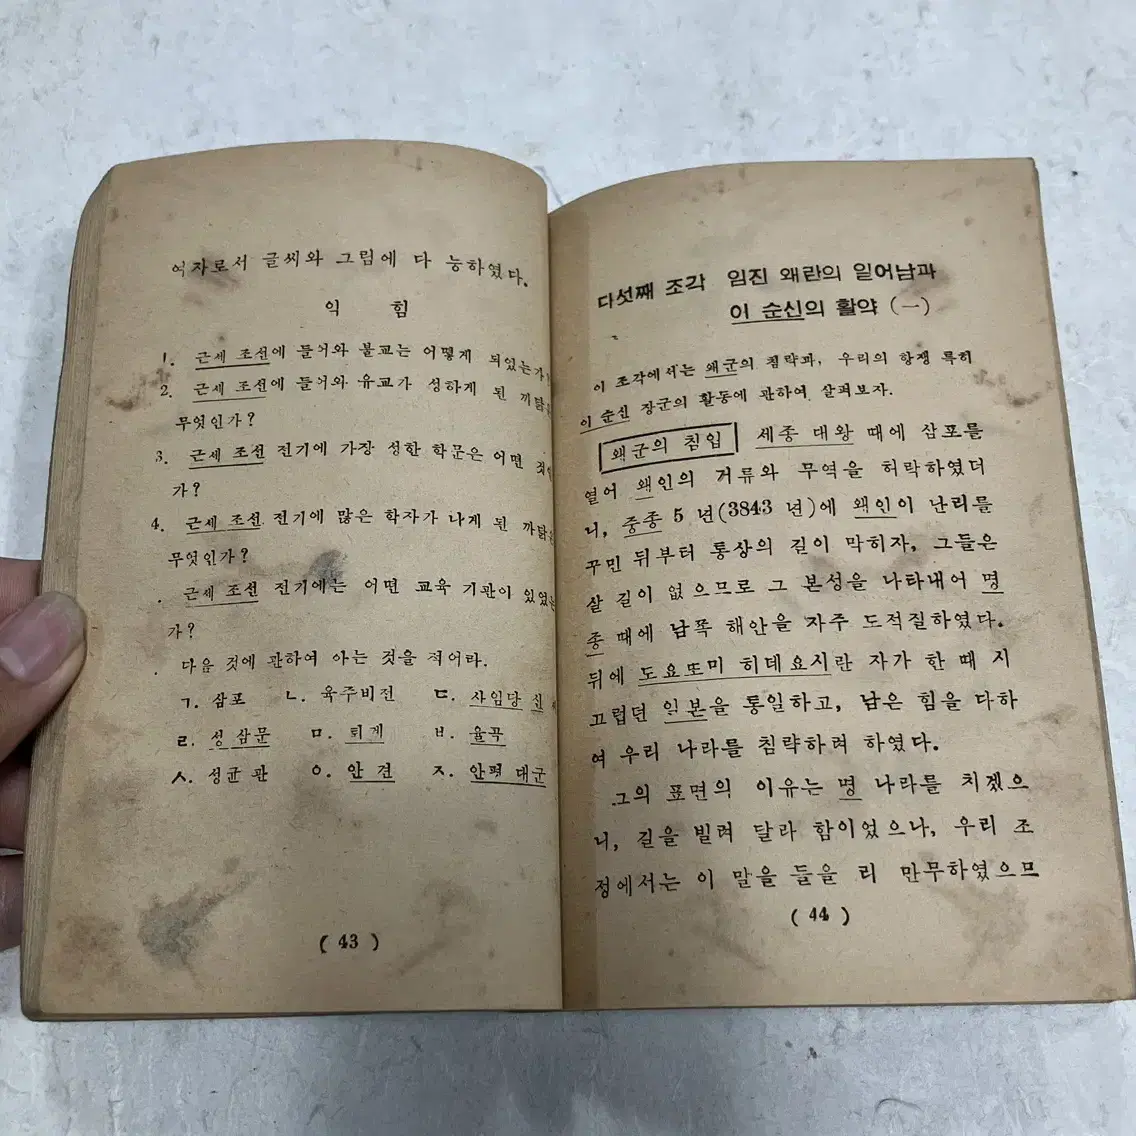 여자로서 글씨와 그림에 다 능하였다.
익 힘
1. 근세 조선에 들어와 불교는 어떻게 되었는가
2. 근세 조선에 들어와 유교가 성하게 된 까닭은
무엇인가?
3. 근세 조선 전기에 가장 성한 학문은 어떤 것인
가?
4. 근세 조선 전기에 많은 학자가 나게 된 까닭은
무엇인가?
. 근세 조선 전기에는 어떤 교육 기관이 있었는
가?
. 다음 것에 관하여 아는 것을 적어라.
ㄱ. 삼포 ㄴ. 육주비전 ㄷ. 사임당 신
ㄹ. 성 삼문 ㅁ. 퇴계 ㅂ. 율곡
ㅅ. 성균 관 ㅇ. 안 견 ㅈ. 안평 대군
( 43 )
다섯째 조각 임진 왜란의 일어남과
이 순신의 활약 (一)
이 조각에서는 왜군의 침략과, 우리의 항쟁 특히
이 순신 장군의 활동에 관하여 살펴보자.
왜군의 침입 세종 대왕 때에 삼포를
열어 왜인의 거류와 무역을 허락하였더
니, 중종 5 년(3843 년)에 왜인이 난리를
꾸민 뒤부터 통상의 길이 막히자, 그들은
살 길이 없으므로 그 본성을 나타내어 명
종 때에 남쪽 해안을 자주 도적질하였다.
뒤에 도요또미 히데요시란 자가 한 때 시
끄럽던 일본을 통일하고, 남은 힘을 다하
여 우리 나라를 침략하려 하였다.
그의 표면의 이유는 명 나라를 치겠으
니, 길을 빌려 달라 함이었으나, 우리 조
정에서는 이 말을 들을 리 만무하였으므
( 44 )